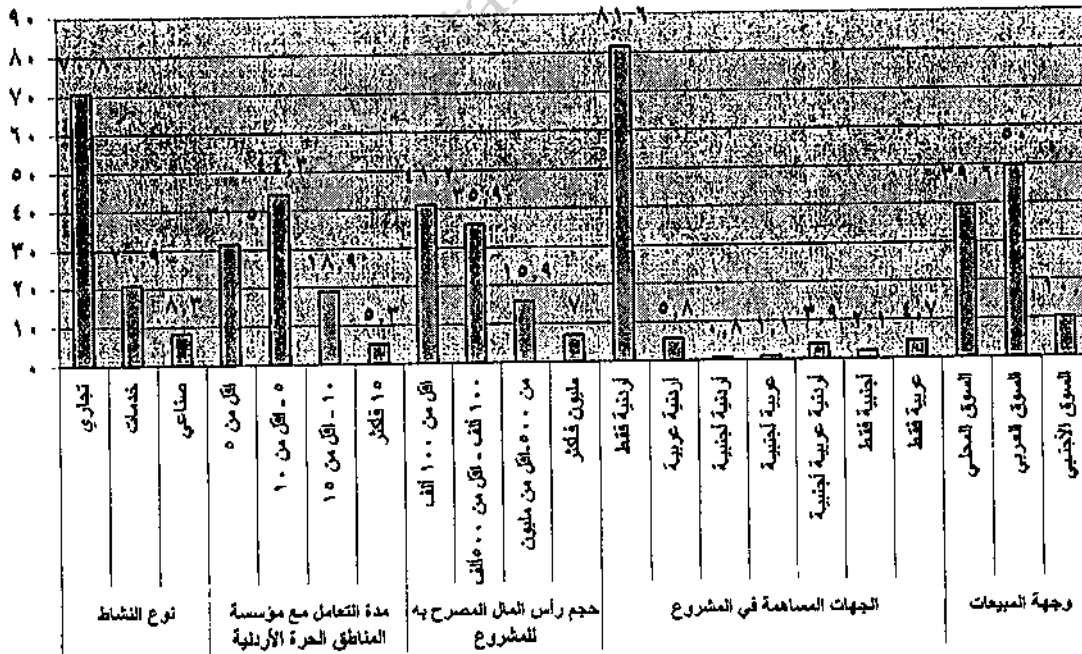 ٩٠
٨٠
٧٠
٦٠
٥٠
٤٠
٣٠
٢٠
١٠
٠
٨,٣
٤٤,٣
١٨,٩
٥,٣
٤١,٢
٣٥,٩
١٥,٩
٧
٨١,٦
٥,٨
٠,٨
١,١
٣,٩
٢,١
٤,٧
٣٩,٦
تجاري
خدمات
صناعي
اقل من ٥
٥ - اقل من ١٠
١٠ - اقل من ١٥
١٥ فاكثر
اقل من ١٠٠ ألف
١٠٠ ألف - اقل من ٥٠٠ ألف
من ٥٠٠-اقل من مليون
مليون فاكثر
أردنية فقط
أردنية عربية
أردنية أجنبية
عربية أجنبية
أردنية عربية أجنبية
أجنبية فقط
عربية فقط
السوق المحلي
السوق العربي
السوق الأجنبي
نوع النشاط
مدة التعامل مع مؤسسة
المناطق الحرة الأردنية
حجم رأس المال المصرح به
للمشروع
الجهات المساهمة في المشروع
وجهة المبيعات